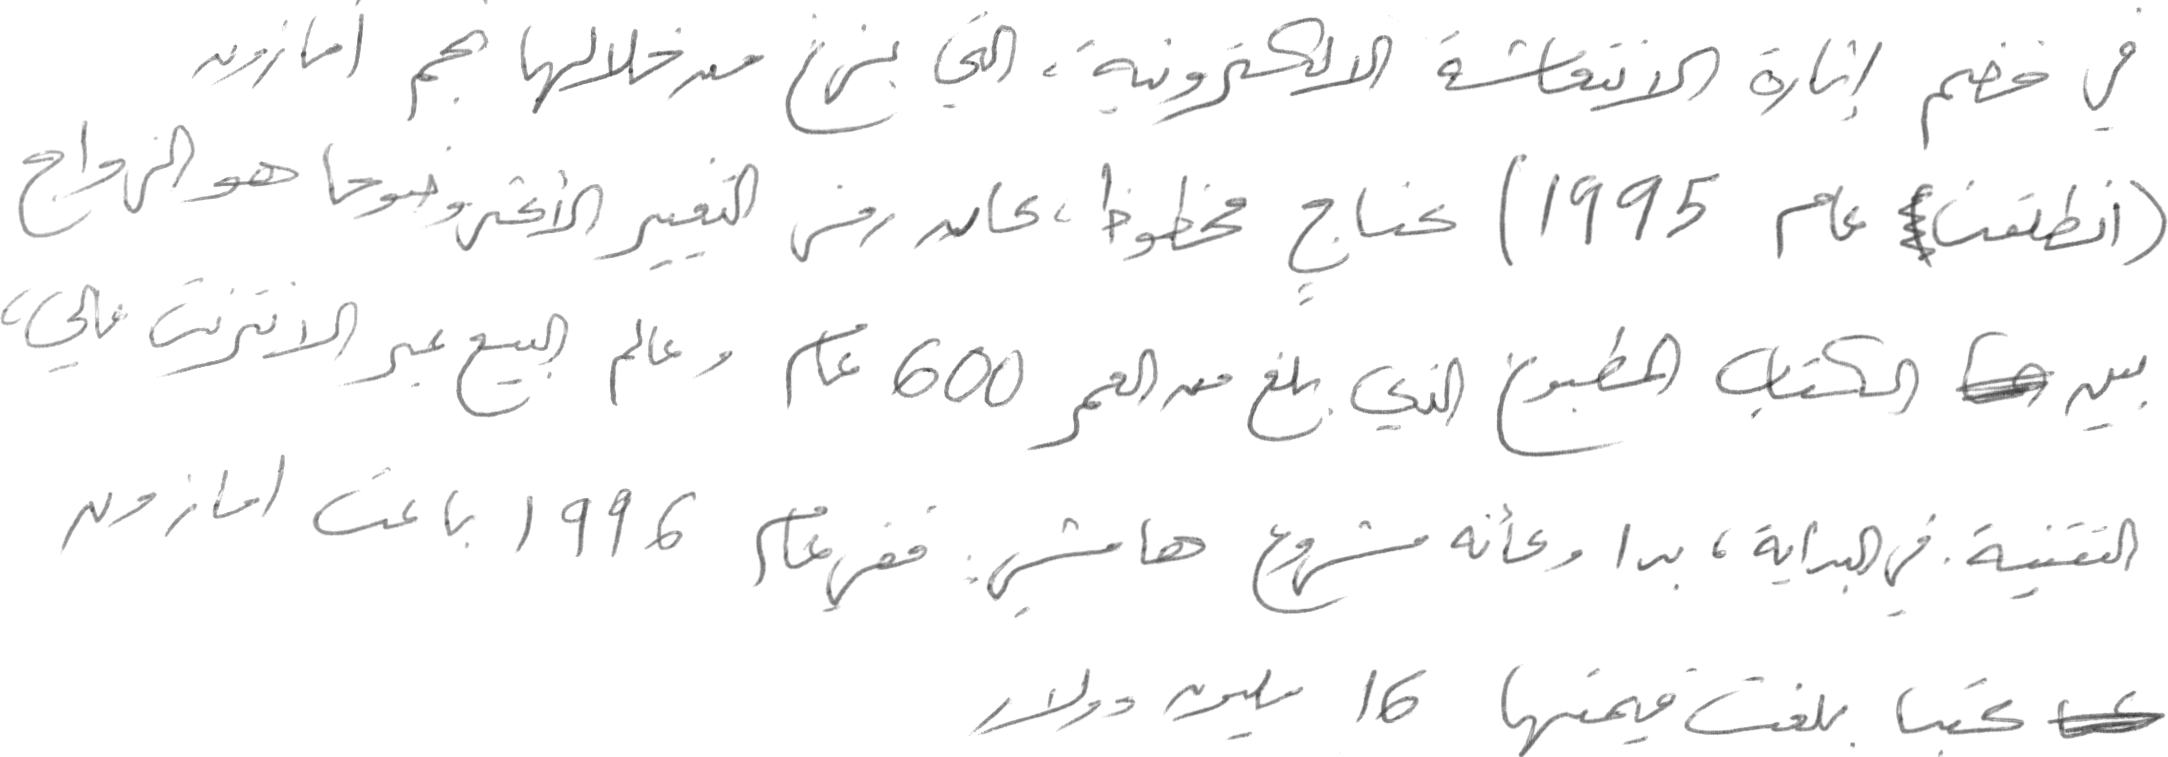 في خضم إثارة الانتعاشة الالكترونية، التي بزغ من خلالها نجم أمازون
(انطلقت عام 1995) كناجٍ محظوظ، كان رمز التغيير الأكثر وضوحا هو الزواج
بين الكتاب المطبوع الذي بلغ من العمر 600 عام وعالم البيع عبر الانترنت عالي،
التقنية. في البداية، بدا وكأنه مشروع هامشي: ففي عام 1996 باعت امازون
كتبا بلغت قيمتها 16 مليون دولار